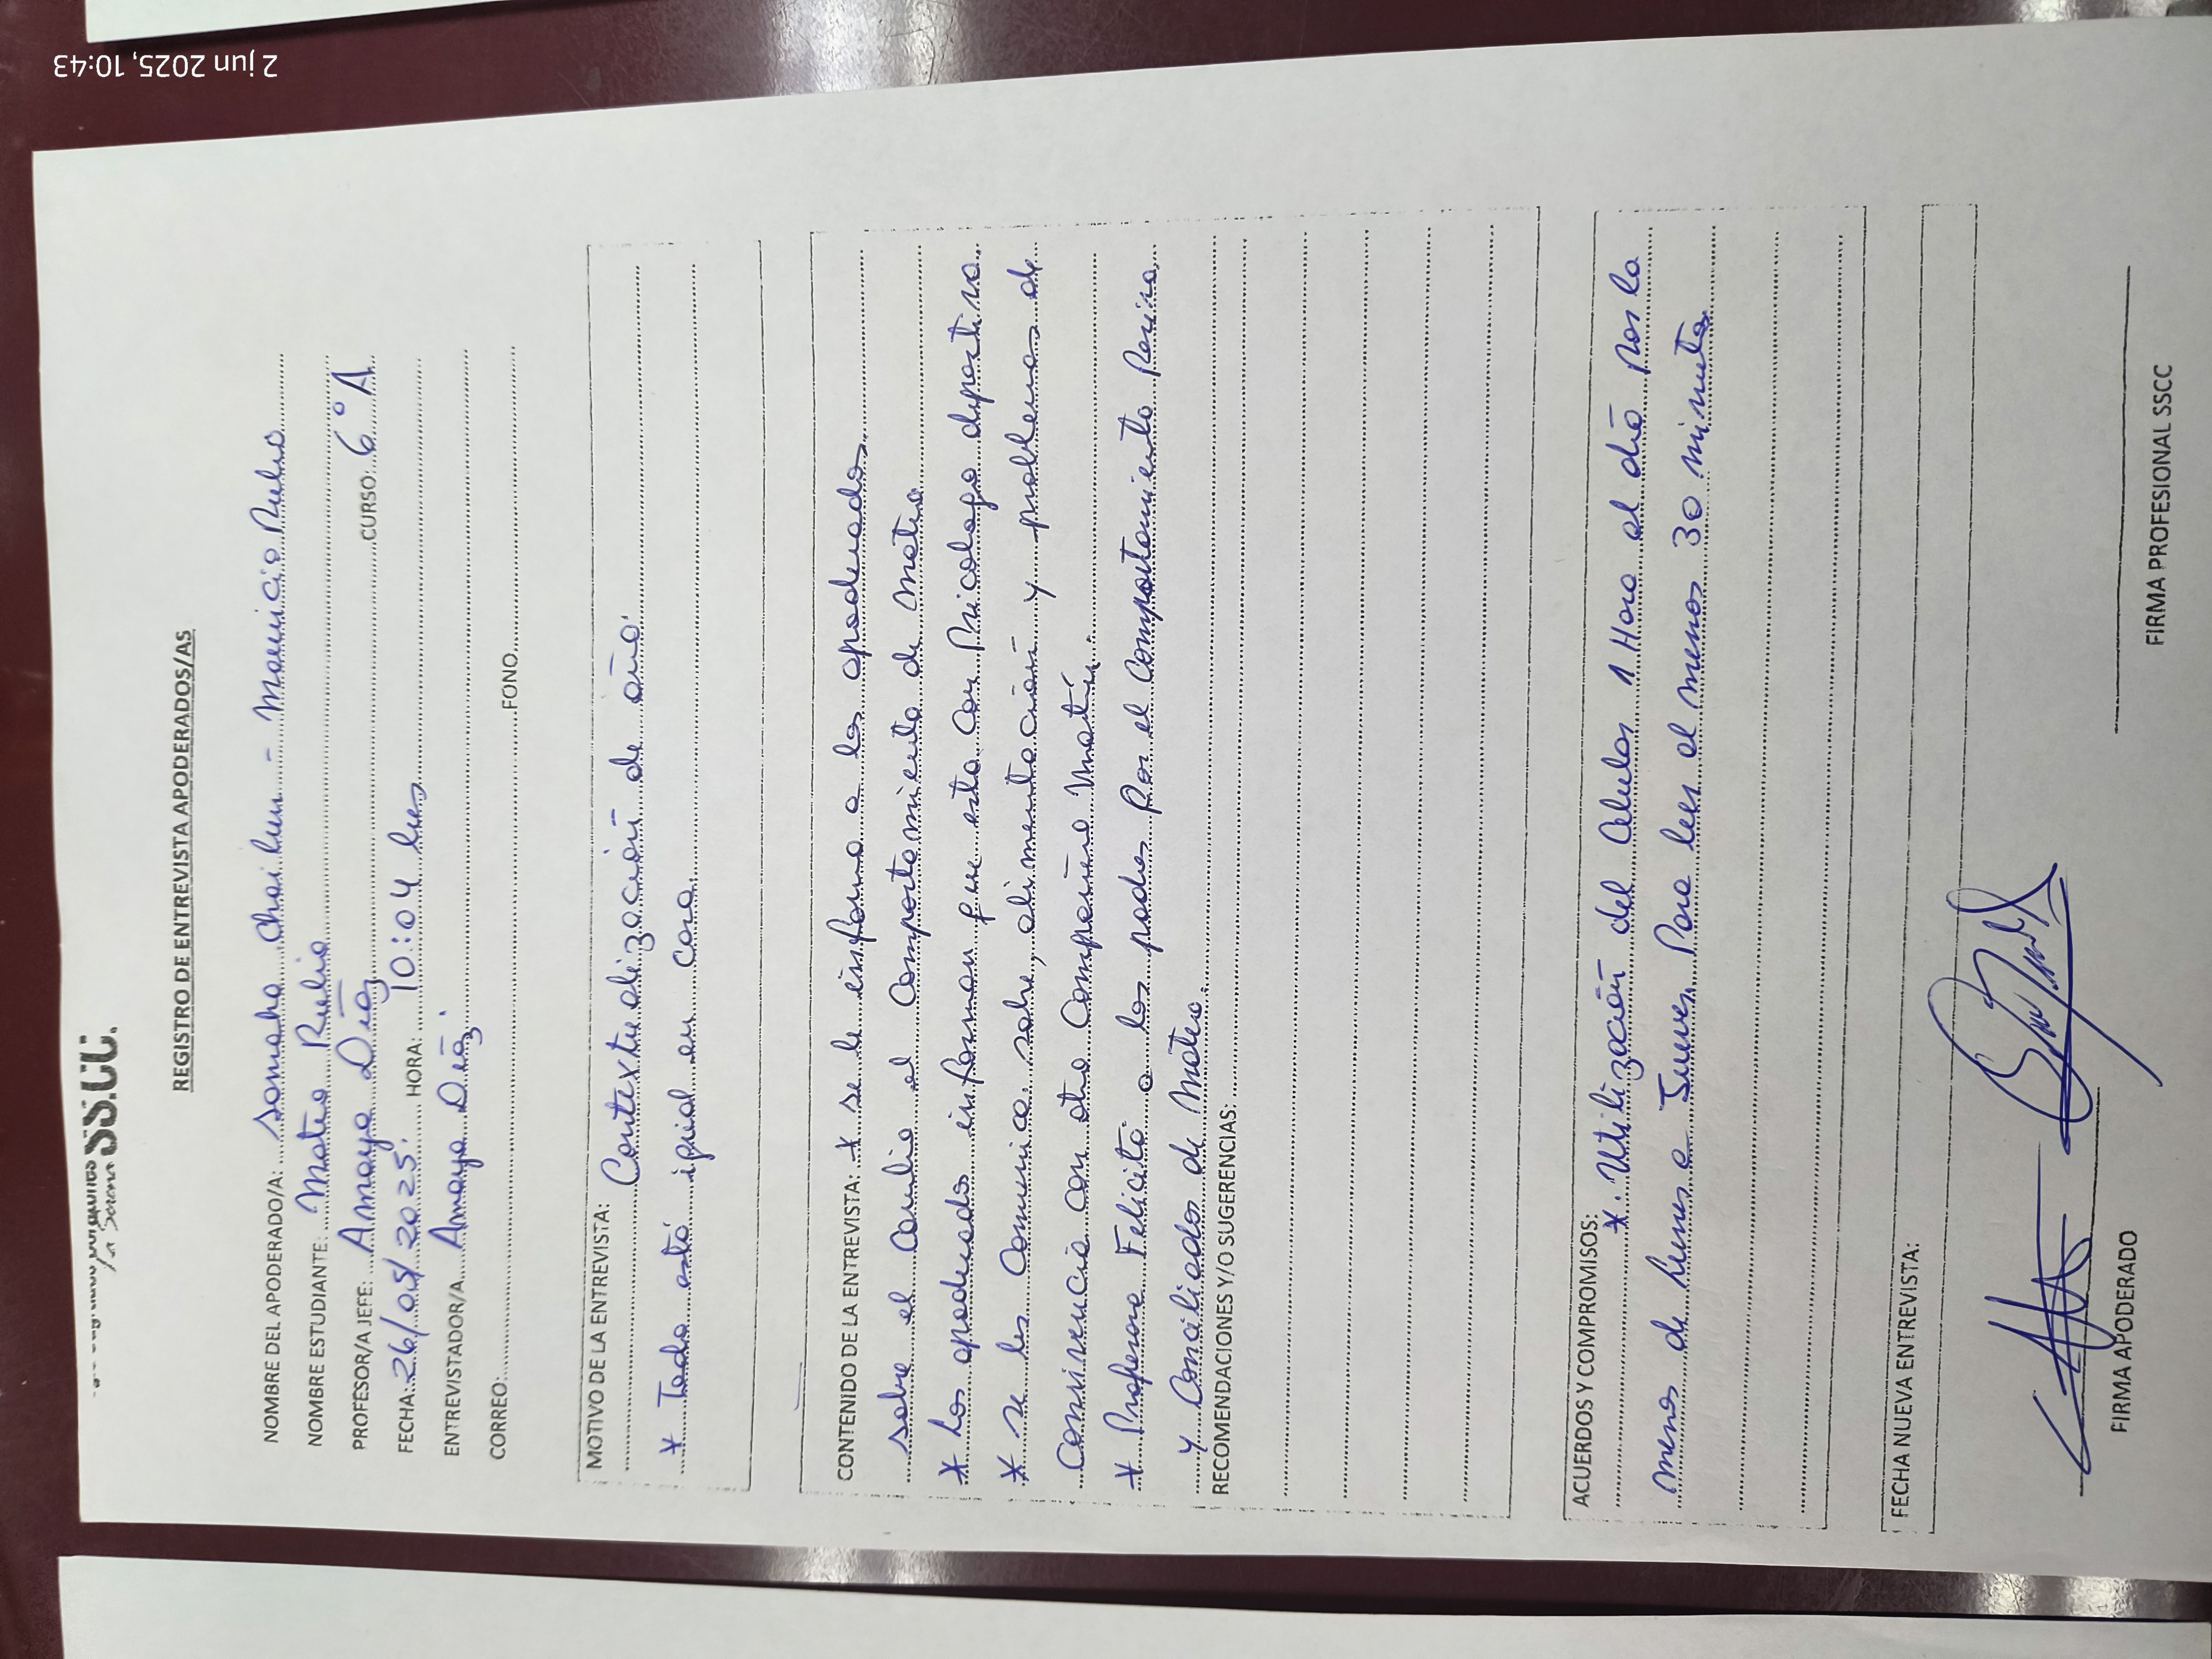 2 jun 2025, 10:43
La Serena SS.CC.
REGISTRO DE ENTREVISTA APODERADOS/AS
NOMBRE DEL APODERADO/A: - Mauricio Rubio
NOMBRE ESTUDIANTE: Mateo Rubio
PROFESOR/A JEFE: Amaya Díaz CURSO: 6° A
FECHA: 26/05/2025. HORA: 10:04 hrs
ENTREVISTADOR/A Amaya Díaz.
CORREO: FONO
MOTIVO DE LA ENTREVISTA: Contextualización de año.
* Todo está igual en casa.
CONTENIDO DE LA ENTREVISTA: * se le informa a los apoderados
sobre el cambio el comportamiento de Mateo
* Los apoderado informan que esta con Psicologo deportivo.
* se les comunica sobre, alimentación y problemas de
convivencia con otro compañero Martín.
* Profesora Felicita a los padres por el comportamiento
y conciliador de Mateo.
RECOMENDACIONES Y/O SUGERENCIAS:
ACUERDOS Y COMPROMISOS:
* Utilización del celular 1 Hora al día por lo
menos de lunes a Jueves. Para leer al menos 30 minutos.
FECHA NUEVA ENTREVISTA:
FIRMA APODERADO
FIRMA PROFESIONAL SSCC